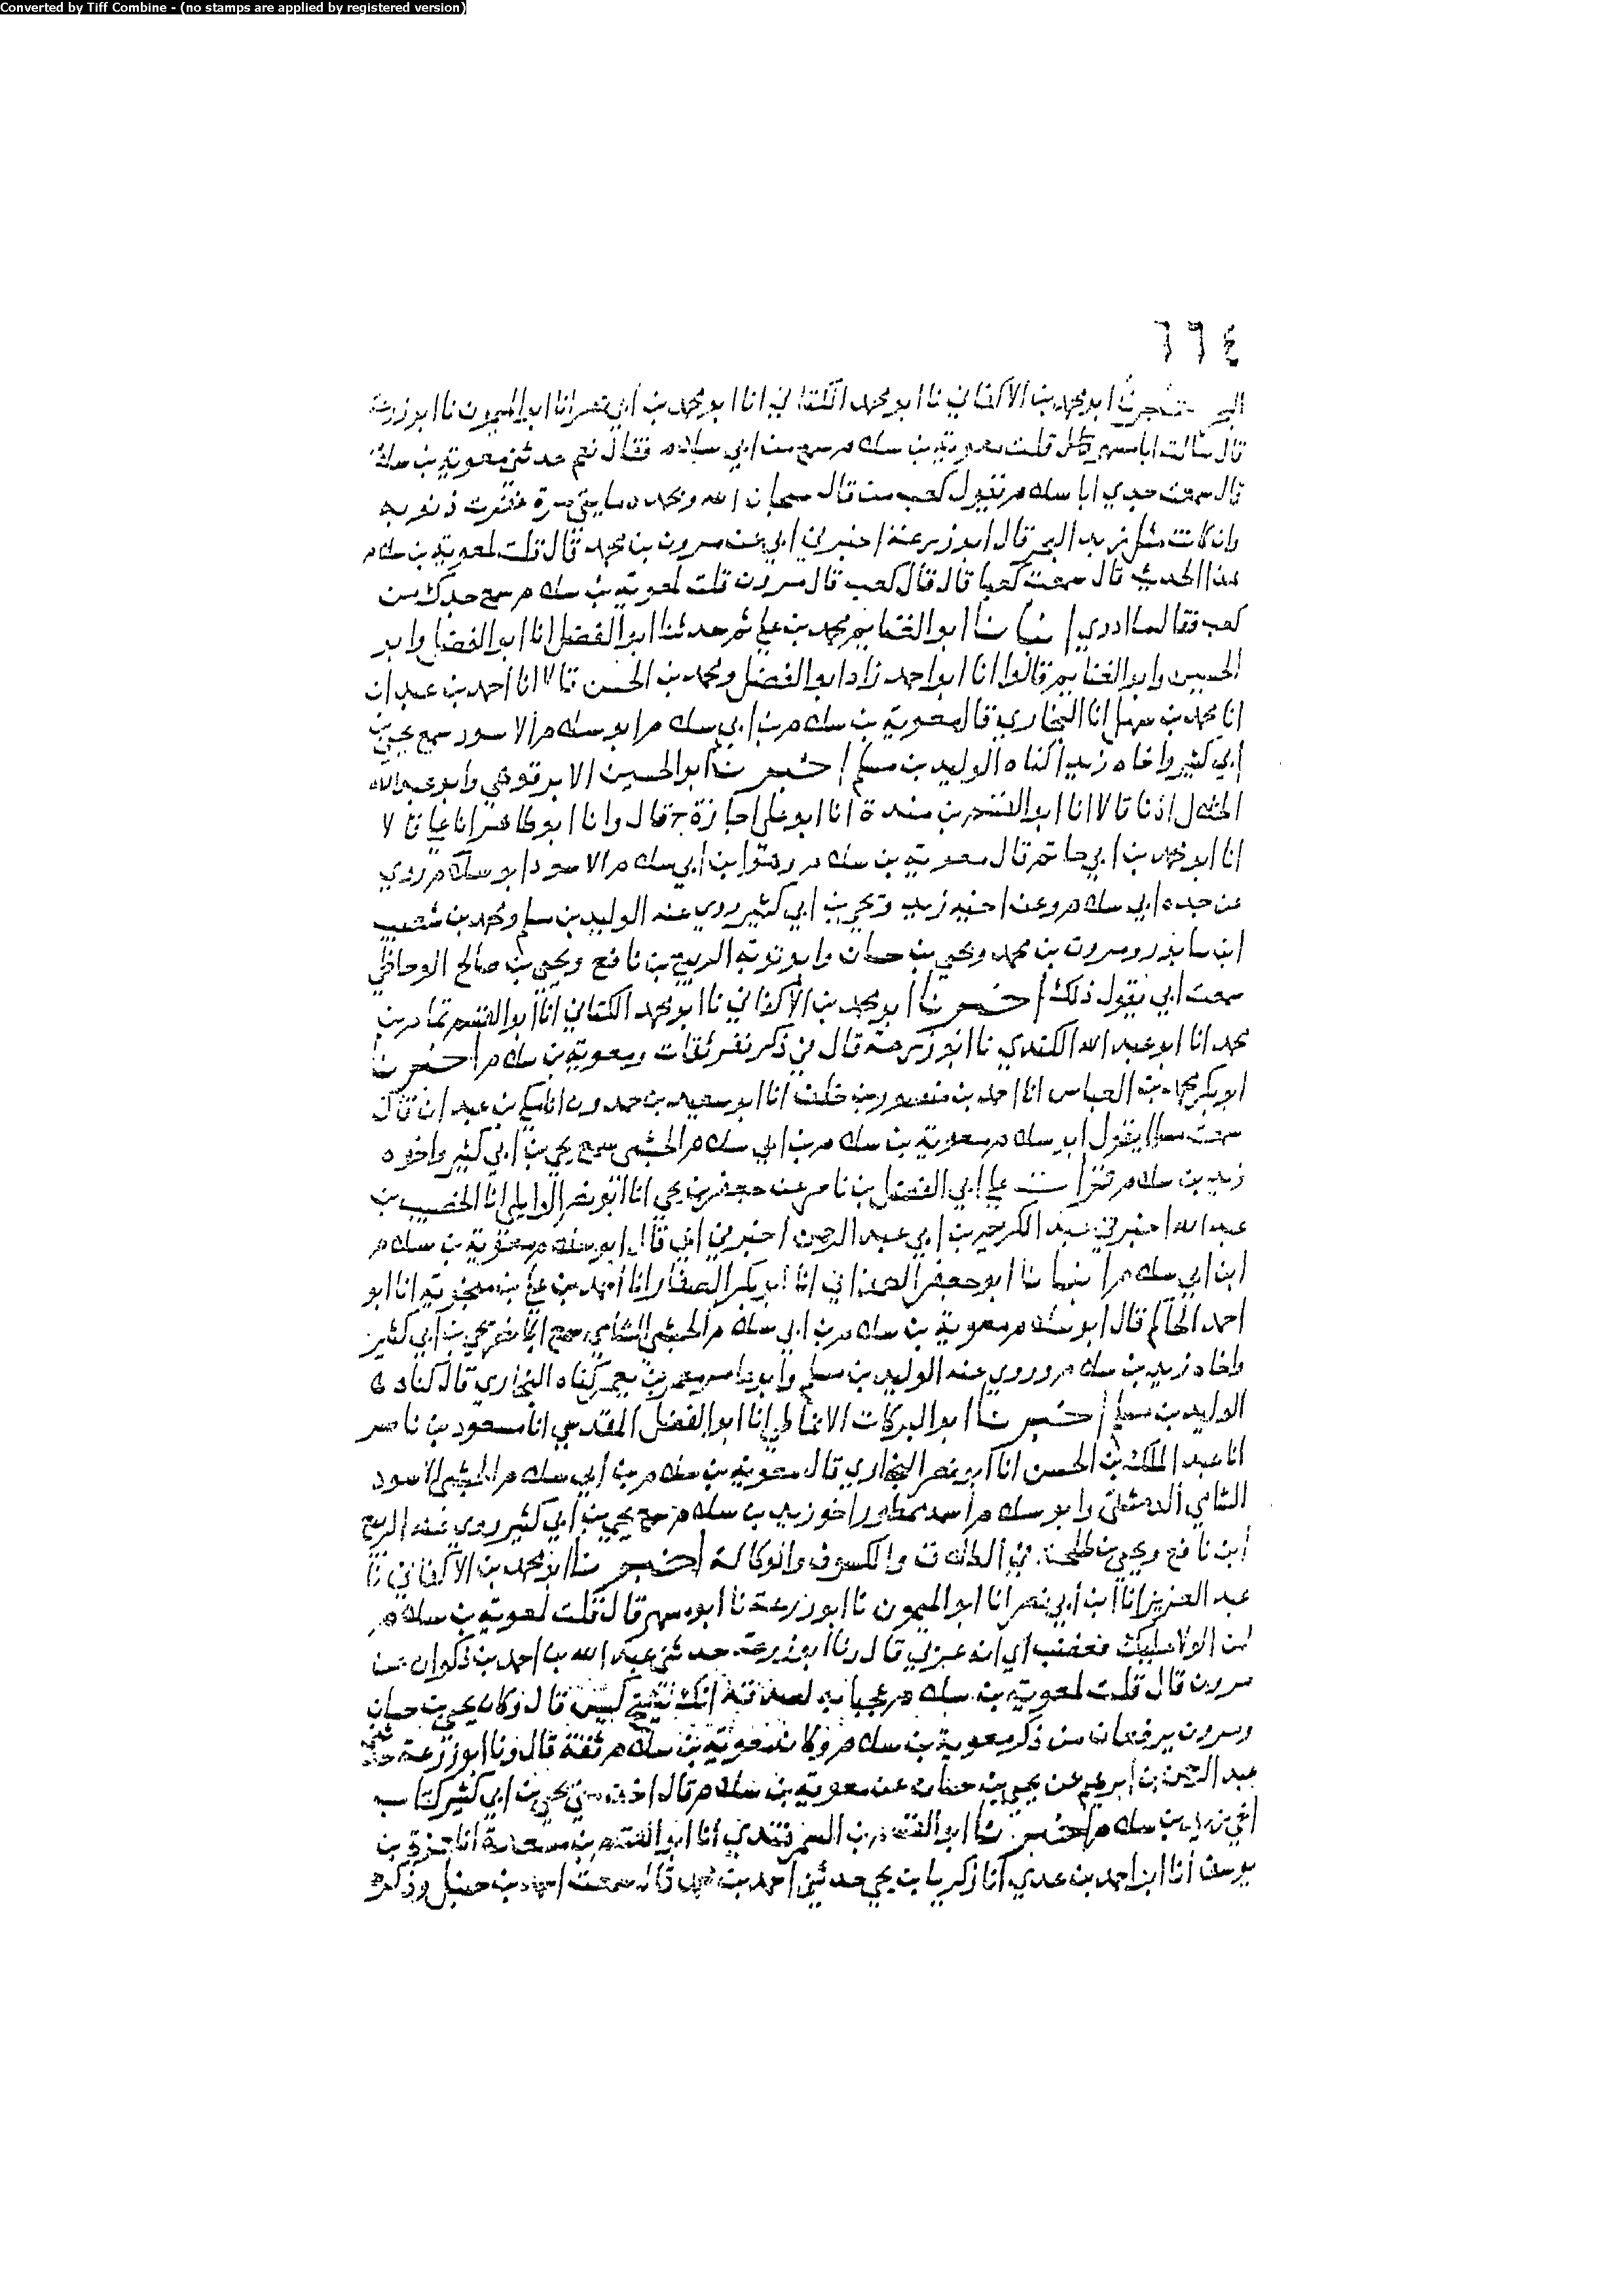 Converted by Tiff Combine - (no stamps are applied by registered version)
٦٦٤
البحر ابو محمد بن الاكفاني نا ابو محمد الكتاني انا ابو محمد بن ابي نصر انا ابو الميمون نا ابو زرعة
قال سالت ابا مسهر قلت معوية بن سلام سمع من ابي سلام فقال نعم حدثني معوية بن سلام
قال سمعت جدي ابا سلام يقول كعب من قال سبحان الله وبحمده مايتي مرة غفرت ذنوبه
وان كانت مثل زبد البحر قال ابو زرعة اخبرني ابي عن مرون بن محمد قال قلت لمعوية بن سلام
هذا الحديث قال سمعت كعبا قال قال كعب قال مرون قلت لمعوية بن سلام سمع جدك من
كعب فقال ما ادري انبانا ابو الغنايم محمد بن علي ثم حدثنا ابو الفضل انا ابو الفضل وابو
الحسين وابو الغنايم قالوا انا ابو احمد زاد ابو الفضل ومحمد بن الحسن قالا انا احمد بن عبدان
انا محمد بن سهل انا البخاري قال معوية بن سلام بن ابي سلام ابو سلام الاسود سمع يحيى بن
ابي كثير واخاه زيدا كناه الوليد بن مسلم اخبرنا ابو الحسين الابرقوهي وابو عبد الله
الخلال اذنا قالا انا ابو القسم بن مندة انا ابو علي اجازة ح قال وانا ابو طاهر انا علي قالا
انا ابو محمد بن ابي حاتم قال معوية بن سلام وهو ابن ابي سلام الاسود ابو سلام روي
عن جده ابي سلام وعن اخيه زيد ويحيى بن ابي كثير روي عنه الوليد بن مسلم ومحمد بن شعيب
ابن سابور ومرون بن محمد ويحيى بن حسان وابو توبة الربيع بن نافع ويحيى بن صالح الوحاظي
سمعت ابي يقول ذلك اخبرنا ابو محمد بن الاكفاني نا ابو محمد الكتاني انا ابو القسم تمام بن
محمد انا ابو عبد الله الكندي نا ابو زرعة قال في ذكر نفر ثقات ومعوية بن سلام اخبرنا
ابو بكر محمد بن العباس انا احمد بن منصور بن خلف انا ابو سعيد بن حمدون انا مكي بن عبدان قال
سمعت مسلما يقول ابو سلام معوية بن سلام بن ابي سلام الحبشي سمع يحيى بن ابي كثير واخوه
زيد بن سلام قرات علي ابي الفضل بن ناصر عن جعفر بن يحيى انا ابو نصر الوايلي انا الخصيب بن
عبد الله اخبرني عبد الكريم بن ابي عبد الرحمن اخبرني ابي قال ابو سلام معوية بن سلام
ابن ابي سلام انبانا ابو جعفر الهمذاني انا ابو بكر الصفار انا احمد بن علي بن منجويه انا ابو
احمد الحاكم قال ابو سلام معوية بن سلام بن ابي سلام الحبشي الشامي سمع ابا نصر يحيى بن ابي كثير
واخاه زيد بن سلام وروي عنه الوليد بن مسلم وابو عامر معمر بن يعمر كناه البخاري قال كناه
الوليد بن مسلم اخبرنا ابو البركات الانماطي انا ابو الفضل المقدسي انا مسعود بن ناصر
انا عبد الملك بن الحسن انا ابو نصر البخاري قال معوية بن سلام بن ابي سلام الحبشي الاسود
الشامي الدمشقي وابو سلام اسمه ممطور اخو زيد بن سلام سمع يحيى بن ابي كثير روي عنه الربيع
ابن نافع ويحيى بن صالح في الطلاق والكسوف والوكالة اخبرنا ابو محمد بن الاكفاني نا
عبد العزيز انا ابن ابي نصر انا ابو الميمون نا ابو زرعة نا ابو مسهر قال قلت لمعوية بن سلام
لمن الولا عليك فغضب اي انه عربي قال ونا ابو زرعة حدثني عبد الله بن احمد بن ذكوان عن
مرون قال قلت لمعوية بن سلام عجبا به لصدقه انك لشيخ كيس قال وكان يحيى بن حسان
ومرون يرفعان من ذكر معوية بن سلام وكان معوية بن سلام ثقة قال ونا ابو زرعة حدثني
عبد الرحمن بن ابرهيم عن يحيى بن حسان عن معوية بن سلام قال اخذ مني يحيى بن ابي كثير كتاب
اخي زيد بن سلام اخبرنا ابو القسم بن السمرقندي انا ابو القسم بن مسعدة انا حمزة بن
يوسف انا ابو احمد بن عدي انا زكريا بن يحيى حدثني احمد بن محمد قال سمعت احمد بن حنبل وذكر